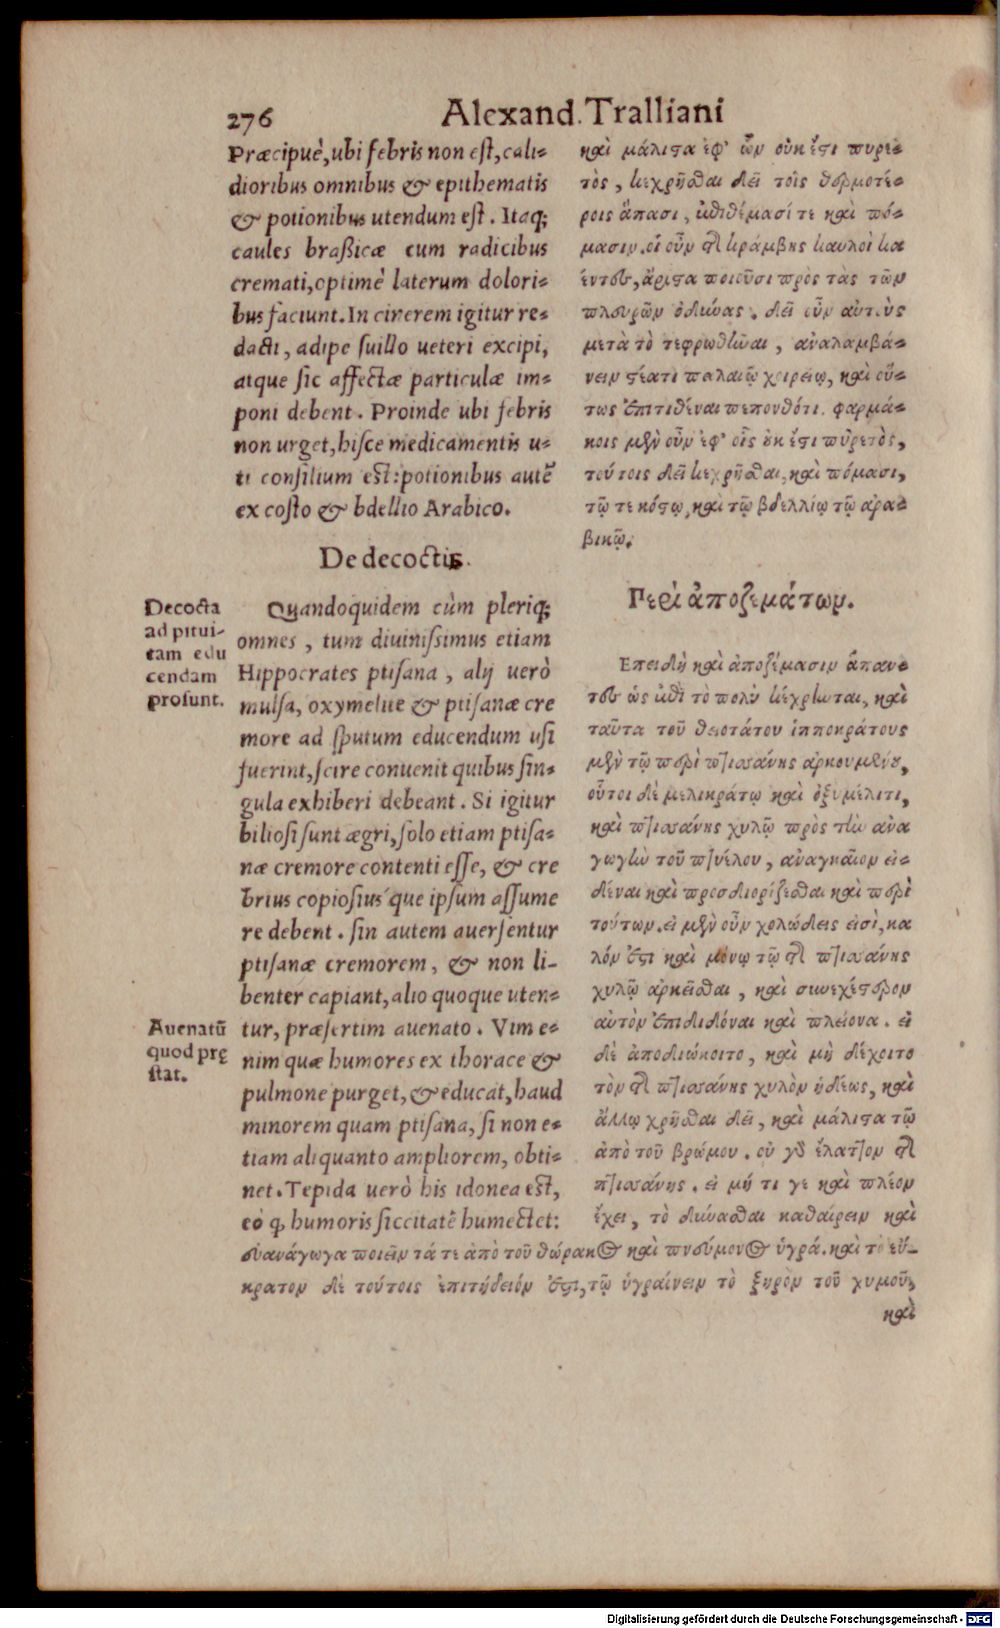 276 Alexand. Tralliani
Præcipuè, ubi febris non est, cali-
dioribus omnibus & epithematis
& potionibus utendum est. Itaq;
caules braßicæ cum radicibus
cremati, optimè laterum dolori-
bus faciunt. In cinerem igitur re-
dacti, adipe suillo ueteri excipi,
atque sic affectæ particulæ im-
poni debent. Proinde ubi febris
non urget, hisce medicamentis u-
ti consilium est: potionibus autẽ
ex costo & bdellio Arabico.
De decoctis.
Decocta
ad pitui-
tam edu
cendam
prosunt.
Quandoquidem cùm pleriq;
omnes, tum diuinissimus etiam
Hippocrates ptisana, alij uerò
mulsa, oxymelite & ptisanæ cre
more ad sputum educendum usi
fuerint, scire conuenit quibus sin-
gula exhiberi debeant. Si igitur
biliosi sunt ægri, solo etiam ptisa-
næ cremore contenti esse, & cre
brius copiosius´que ipsum assume
re debent. sin autem auersentur
ptisanæ cremorem, & non li-
benter capiant, alio quoque uten-
Auenatũ
quod prę
stat.
tur, præsertim auenato. Vim e-
nim quæ humores ex thorace &
pulmone purget, & educat, haud
minorem quam ptisana, si non e-
tiam aliquanto ampliorem, obti-
net. Tepida uerò his idonea est,
eò ꝙ humoris siccitatẽ humectet:
καὶ μάλιστα ἐφ' ὧν οὐκ ἔστι πυρε-
τὸς, κεχρῆσθαι δεῖ τοῖς θερμοτέ-
ροις ἅπασι, ἐπιθέμασί τε καὶ πό-
μασιν. οἱ οὖν τῆς κράμβης καυλοὶ κα
έντες, ἄριστα ποιοῦσι πρὸς τὰς τῶν
πλευρῶν ὀδύνας. δεῖ οὖν αὐτοὺς
μετὰ τὸ τεφρωθῆναι, ἀναλαμβά-
νειν στέατι παλαιῷ χοιρείῳ, καὶ οὕ-
τως ἐπιτιθέναι πεπονθότι. φαρμά-
κοις μὲν οὖν ἐφ' οἷς οὐκ ἔστι πυρετὸς,
τούτοις δεῖ κεχρῆσθαι, καὶ πόμασι,
τῷ τε κόστῳ, καὶ τῷ βδελλίῳ τῷ ἀρα-
βικῷ.
Περὶ ἀποζεμάτων.
Επειδὴ καὶ ἀποζέμασιν ἅπαν-
τες ὡς ἐπὶ τὸ πολὺ κέχρηνται, καὶ
ταῦτα τοῦ θειοτάτου ἱπποκράτους
μὲν τῷ περὶ πτισάνης ἀρκουμένου,
οὗτοι δὲ μελικράτῳ καὶ ὀξυμέλιτι,
καὶ πτισάνης χυλῷ πρὸς τὴν ἀνα
γωγὴν τοῦ πτυέλου, ἀναγκαῖον εἰ-
δέναι καὶ προσδιορίζεσθαι καὶ περὶ
τούτων. εἰ μὲν οὖν χολώδεις εἰσὶ, κα
λόν ἐστι καὶ μόνῳ τῷ τῆς πτισάνης
χυλῷ ἀρκεῖσθαι, καὶ συνεχέστερον
αὐτὸν ἐπιδιδόναι καὶ πλείονα. εἰ
δὲ ἀποδιώκοιτο, καὶ μὴ δέχοιτο
τὸν τῆς πτισάνης χυλὸν ἡδέως, καὶ
ἄλλῳ χρῆσθαι δεῖ, καὶ μάλιστα τῷ
ἀπὸ τοῦ βρώμου. οὐ γὰρ ἔλαττον τῆς
πτισάνης. εἰ μή τι γε καὶ πλέον
ἔχει, τὸ δύνασθαι καθαίρειν καὶ
εὐανάγωγα ποιεῖν τά τε ἀπὸ τοῦ θώρακος καὶ πνεύμονος ὑγρά. καὶ τὸ εὔ-
κρατον δὲ τούτοις ἐπιτήδειόν ἐστι, τῷ ὑγραίνειν τὸ ξηρὸν τοῦ χυμοῦ,
καὶ
Digitalisierung gefördert durch die Deutsche Forschungsgemeinschaft - DFG